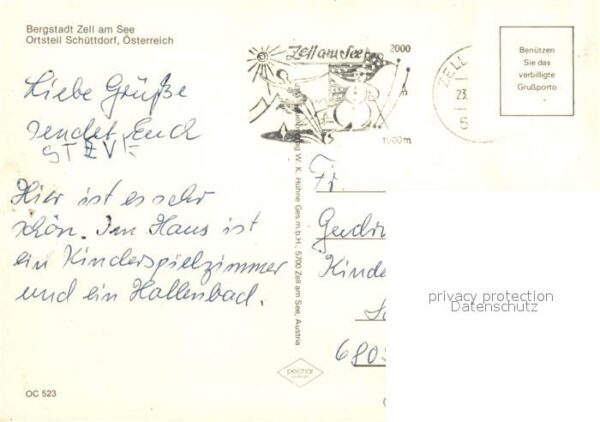 Bergstadt Zell am See
Ortsteil Schüttdorf, Österreich
Zell am See
2000
1000m
ZELL
23.
5
Benützen
Sie das
verbilligte
Grußporto
Liebe Grüße
sendet Euch
STEVE
Hier ist es sehr
schön. Im Haus ist
ein Kinderspielzimmer
und ein Hallenbad.
W. K. Hühne Ges.m.b.H., 5700 Zell am See, Austria
Fr.
Kinde
680
privacy protection
Datenschutz
peichar
OC 523